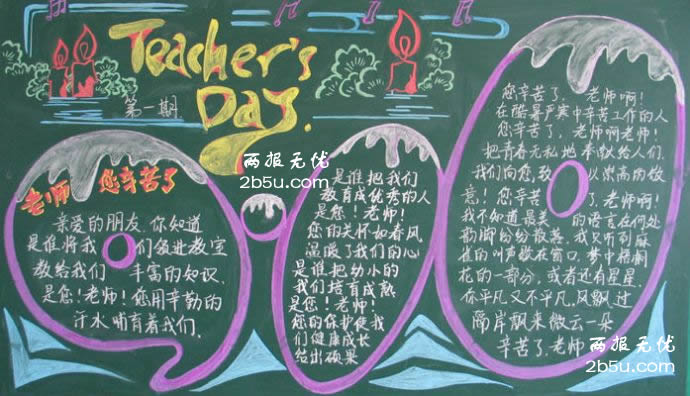 Teacher's
Day.
第一期
老师 您辛苦了
亲爱的朋友.你知道
是谁将我们领进教室
教给我们丰富的知识.
是您!老师!您用辛勤的
汗水哺育着我们.
两报无优
2b5u.com
是谁把我们
教育成优秀的人
是您!老师!
您的关怀如春风
温暖了我们的心
是谁把幼小的
我们培育成熟
是您!老师!
您的保护使我
们健康成长
结出硕果
您辛苦了,老师啊!
在酷暑严寒中辛苦工作的人
您辛苦了,老师啊老师!
把青春无私地奉献给人们.
我们向您致以崇高的敬
意!您辛苦了,老师啊!
我不知道最美的语言在何处
纷纷散落.我只听到麻
雀的叫声歇在窗口,梦中梧桐
花的一部分,或者还有星星.
你平凡又不平凡,风飘过
岸飘来微云一朵
辛苦了.老师
两报无优
2b5u.com